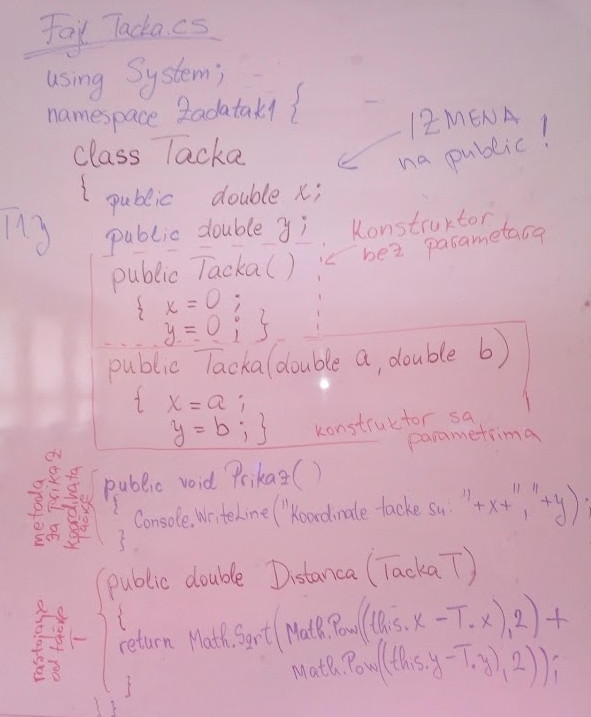 Fajl Tacka.cs
using System;
namespace Zadatak1 {
class Tacka
IZMENA
na public!
{ public double x;
public double y;
Konstruktor
bez parametara
public Tacka()
{ x = 0;
y = 0; }
public Tacka(double a, double b)
{ x = a;
y = b; }
konstruktor sa
parametrima
metoda
za prikaz
koordinata
tačke
public void Prikaz()
{
Console.WriteLine("Koordinate tacke su: "+x+","+y);
}
rastojanje
od tačke
T
public double Distanca(Tacka T)
{
return Math.Sqrt(Math.Pow((this.x - T.x),2) +
Math.Pow((this.y - T.y),2));
}
} }